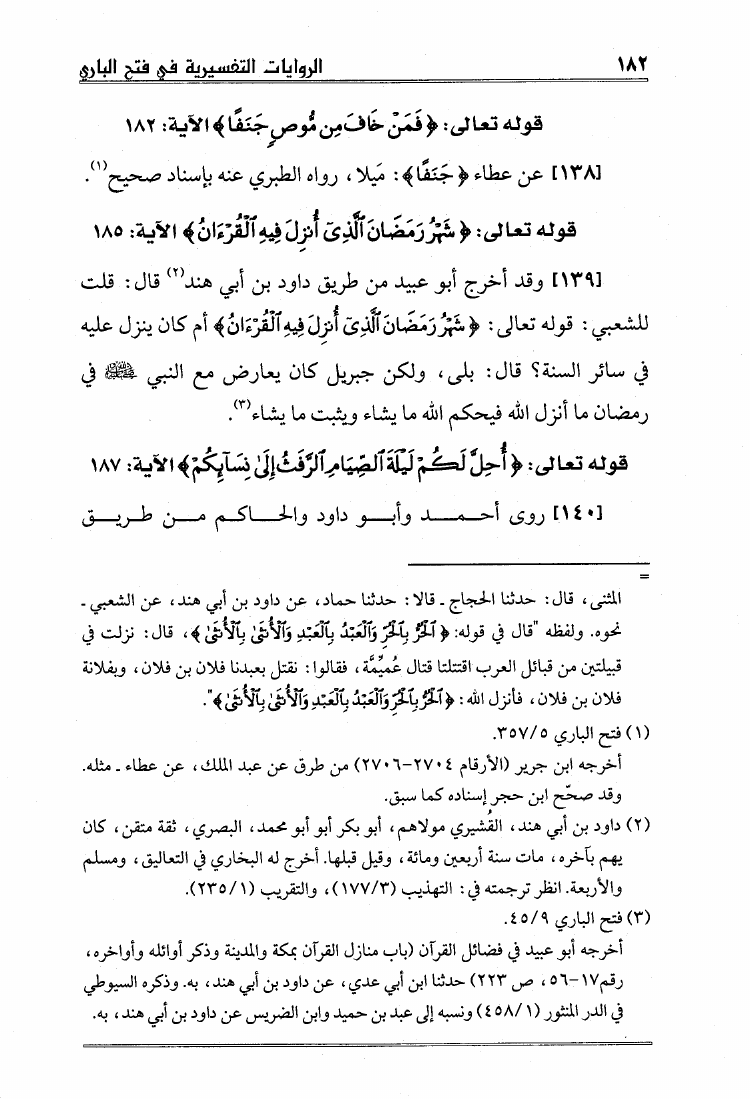 ١٨٢
الروايات التفسيرية في فتح الباري
قوله تعالى: ﴿فَمَنْ خَافَ مِن مُّوصٍ جَنَفًا﴾ الآية: ١٨٢
[١٣٨] عن عطاء ﴿جَنَفًا﴾: مَيلا، رواه الطبري عنه بإسناد صحيح(١).
قوله تعالى: ﴿شَهْرُ رَمَضَانَ ٱلَّذِىٓ أُنزِلَ فِيهِ ٱلْقُرْءَانُ﴾ الآية: ١٨٥
[١٣٩] وقد أخرج أبو عبيد من طريق داود بن أبي هند(٢) قال: قلت
للشعبي: قوله تعالى: ﴿شَهْرُ رَمَضَانَ ٱلَّذِىٓ أُنزِلَ فِيهِ ٱلْقُرْءَانُ﴾ أم كان ينزل عليه
في سائر السنة؟ قال: بلى، ولكن جبريل كان يعارض مع النبي ﷺ في
رمضان ما أنزل الله فيحكم الله ما يشاء ويثبت ما يشاء(٣).
قوله تعالى: ﴿أُحِلَّ لَكُمْ لَيْلَةَ ٱلصِّيَامِ ٱلرَّفَثُ إِلَىٰ نِسَآئِكُمْ﴾ الآية: ١٨٧
[١٤٠] روى أحمد وأبو داود والحاكم من طريق
=
المثنى، قال: حدثنا الحجاج ـ قالا: حدثنا حماد، عن داود بن أبي هند، عن الشعبي ـ
نحوه. ولفظه "قال في قوله: ﴿ٱلْحُرُّ بِٱلْحُرِّ وَٱلْعَبْدُ بِٱلْعَبْدِ وَٱلْأُنثَىٰ بِٱلْأُنثَىٰ﴾، قال: نزلت في
قبيلتين من قبائل العرب اقتتلتا قتال عُمِيَّمَّة، فقالوا: نقتل بعبدنا فلان بن فلان، وبفلانة
فلان بن فلان، فأنزل الله: ﴿ٱلْحُرُّ بِٱلْحُرِّ وَٱلْعَبْدُ بِٱلْعَبْدِ وَٱلْأُنثَىٰ بِٱلْأُنثَىٰ﴾".
(١) فتح الباري ٣٥٧/٥.
أخرجه ابن جرير (الأرقام ٢٧٠٤-٢٧٠٦) من طرق عن عبد الملك، عن عطاء ـ مثله.
وقد صحّح ابن حجر إسناده كما سبق.
(٢) داود بن أبي هند، القُشيري مولاهم، أبو بكر أبو أبو محمد، البصري، ثقة متقن، كان
يهم بآخره، مات سنة أربعين ومائة، وقيل قبلها. أخرج له البخاري في التعاليق، ومسلم
والأربعة. انظر ترجمته في: التهذيب (١٧٧/٣)، والتقريب (٢٣٥/١).
(٣) فتح الباري ٤٥/٩.
أخرجه أبو عبيد في فضائل القرآن (باب منازل القرآن بمكة والمدينة وذكر أوائله وأواخره،
رقم١٧-٥٦، ص ٢٢٣) حدثنا ابن أبي عدي، عن داود بن أبي هند، به. وذكره السيوطي
في الدر المنثور (٤٥٨/١) ونسبه إلى عبد بن حميد وابن الضريس عن داود بن أبي هند، به.